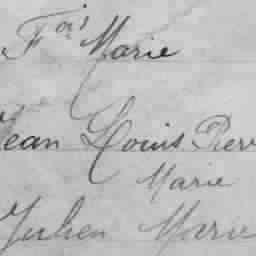 Fois Marie
Jean Louis Pierr
Marie
Julien Marie